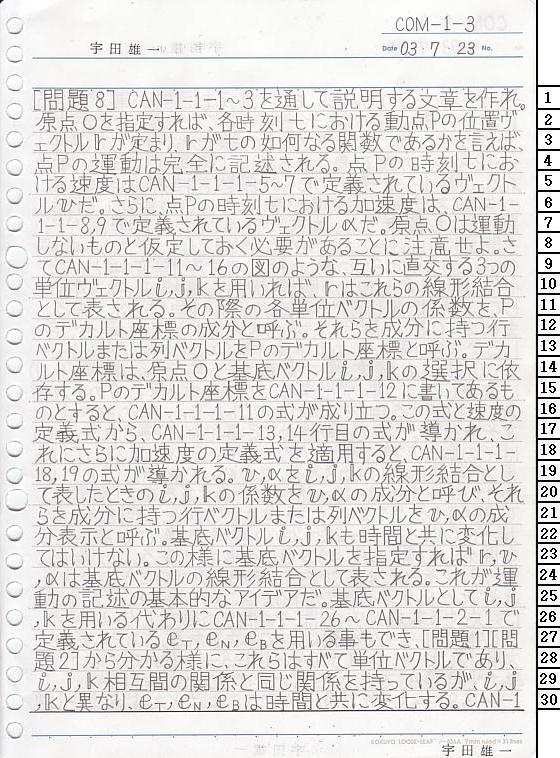 COM-1-3
宇田雄一
Date 03・7・23 No.
[問題8] CAN-1-1-1～3を通して説明する文章を作れ。 1
原点Oを指定すれば、各時刻tにおける動点Pの位置ヴ 2
ェクトルrが定まり、rがtの如何なる関数であるかを言えば、 3
点Pの運動は完全に記述される。点Pの時刻tにお 4
ける速度はCAN-1-1-1-5～7で定義されているヴェクト 5
ルvだ。さらに、点Pの時刻tにおける加速度は、CAN-1- 6
1-1-8,9で定義されているヴェクトルαだ。原点Oは運動 7
しないものと仮定しておく必要があることに注意せよ。さ 8
てCAN-1-1-1-11～16の図のような、互いに直交する3つの 9
単位ヴェクトルi,j,kを用いれば、rはこれらの線形結合 10
として表される。その際の各単位ベクトルの係数を、P 11
のデカルト座標の成分と呼ぶ。それらを成分に持つ行 12
ベクトルまたは列ベクトルをPのデカルト座標と呼ぶ。デカ 13
ルト座標は、原点Oと基底ベクトルi,j,kの選択に依 14
存する。Pのデカルト座標をCAN-1-1-1-12に書いてあるも 15
のとすると、CAN-1-1-1-11の式が成り立つ。この式と速度の 16
定義式から、CAN-1-1-1-13,14行目の式が導かれ、こ 17
れにさらに加速度の定義式を適用すると、CAN-1-1-1- 18
18,19の式が導かれる。v,αをi,j,kの線形結合とし 19
て表したときのi,j,kの係数をv,αの成分と呼び、それ 20
らを成分に持つ行ベクトルまたは列ベクトルをv,αの成 21
分表示と呼ぶ。基底ベクトルi,j,kも時間と共に変化し 22
てはいけない。この様に基底ベクトルを指定すればr,v 23
,αは基底ベクトルの線形結合として表される。これが運 24
動の記述の基本的なアイデアだ。基底ベクトルとしてi,j 25
,kを用いる代わりにCAN-1-1-1-26～CAN-1-1-2-1で 26
定義されているeT,eN,eBを用いる事もでき、[問題1][問 27
題2]から分かる様に、これらはすべて単位ベクトルであり、 28
i,j,k相互間の関係と同じ関係を持っているが、i,j 29
,kと異なり、eT,eN,eBは時間と共に変化する。CAN-1 30
KOKUYO LOOSE-LEAF ノ-836A 7mm ruled×31 lines
宇田雄一